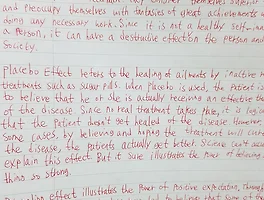 and preoccupy themselves with fantasies of great achievements
doing any necessary work. Since it is not a healthy self-
a person, it can have a destructive effect on the person and
society.
Placebo Effect refers to the healing of ailments by inactive
treatments such as sugar pills. When placebo is used, the patient is
to believe that he or she is actually receiving an effective
of the disease. Since no real treatment takes place, it is
that the patient doesn't get healed of the disease. However,
some cases, by believing and hoping the treatment will cure
the disease, the patients actually get better. Science can't
explain this effect. But it sure illustrates the Power of believing
thing so strong.
effect illustrates the Power of Positive expectation. Through
to believe that some of the